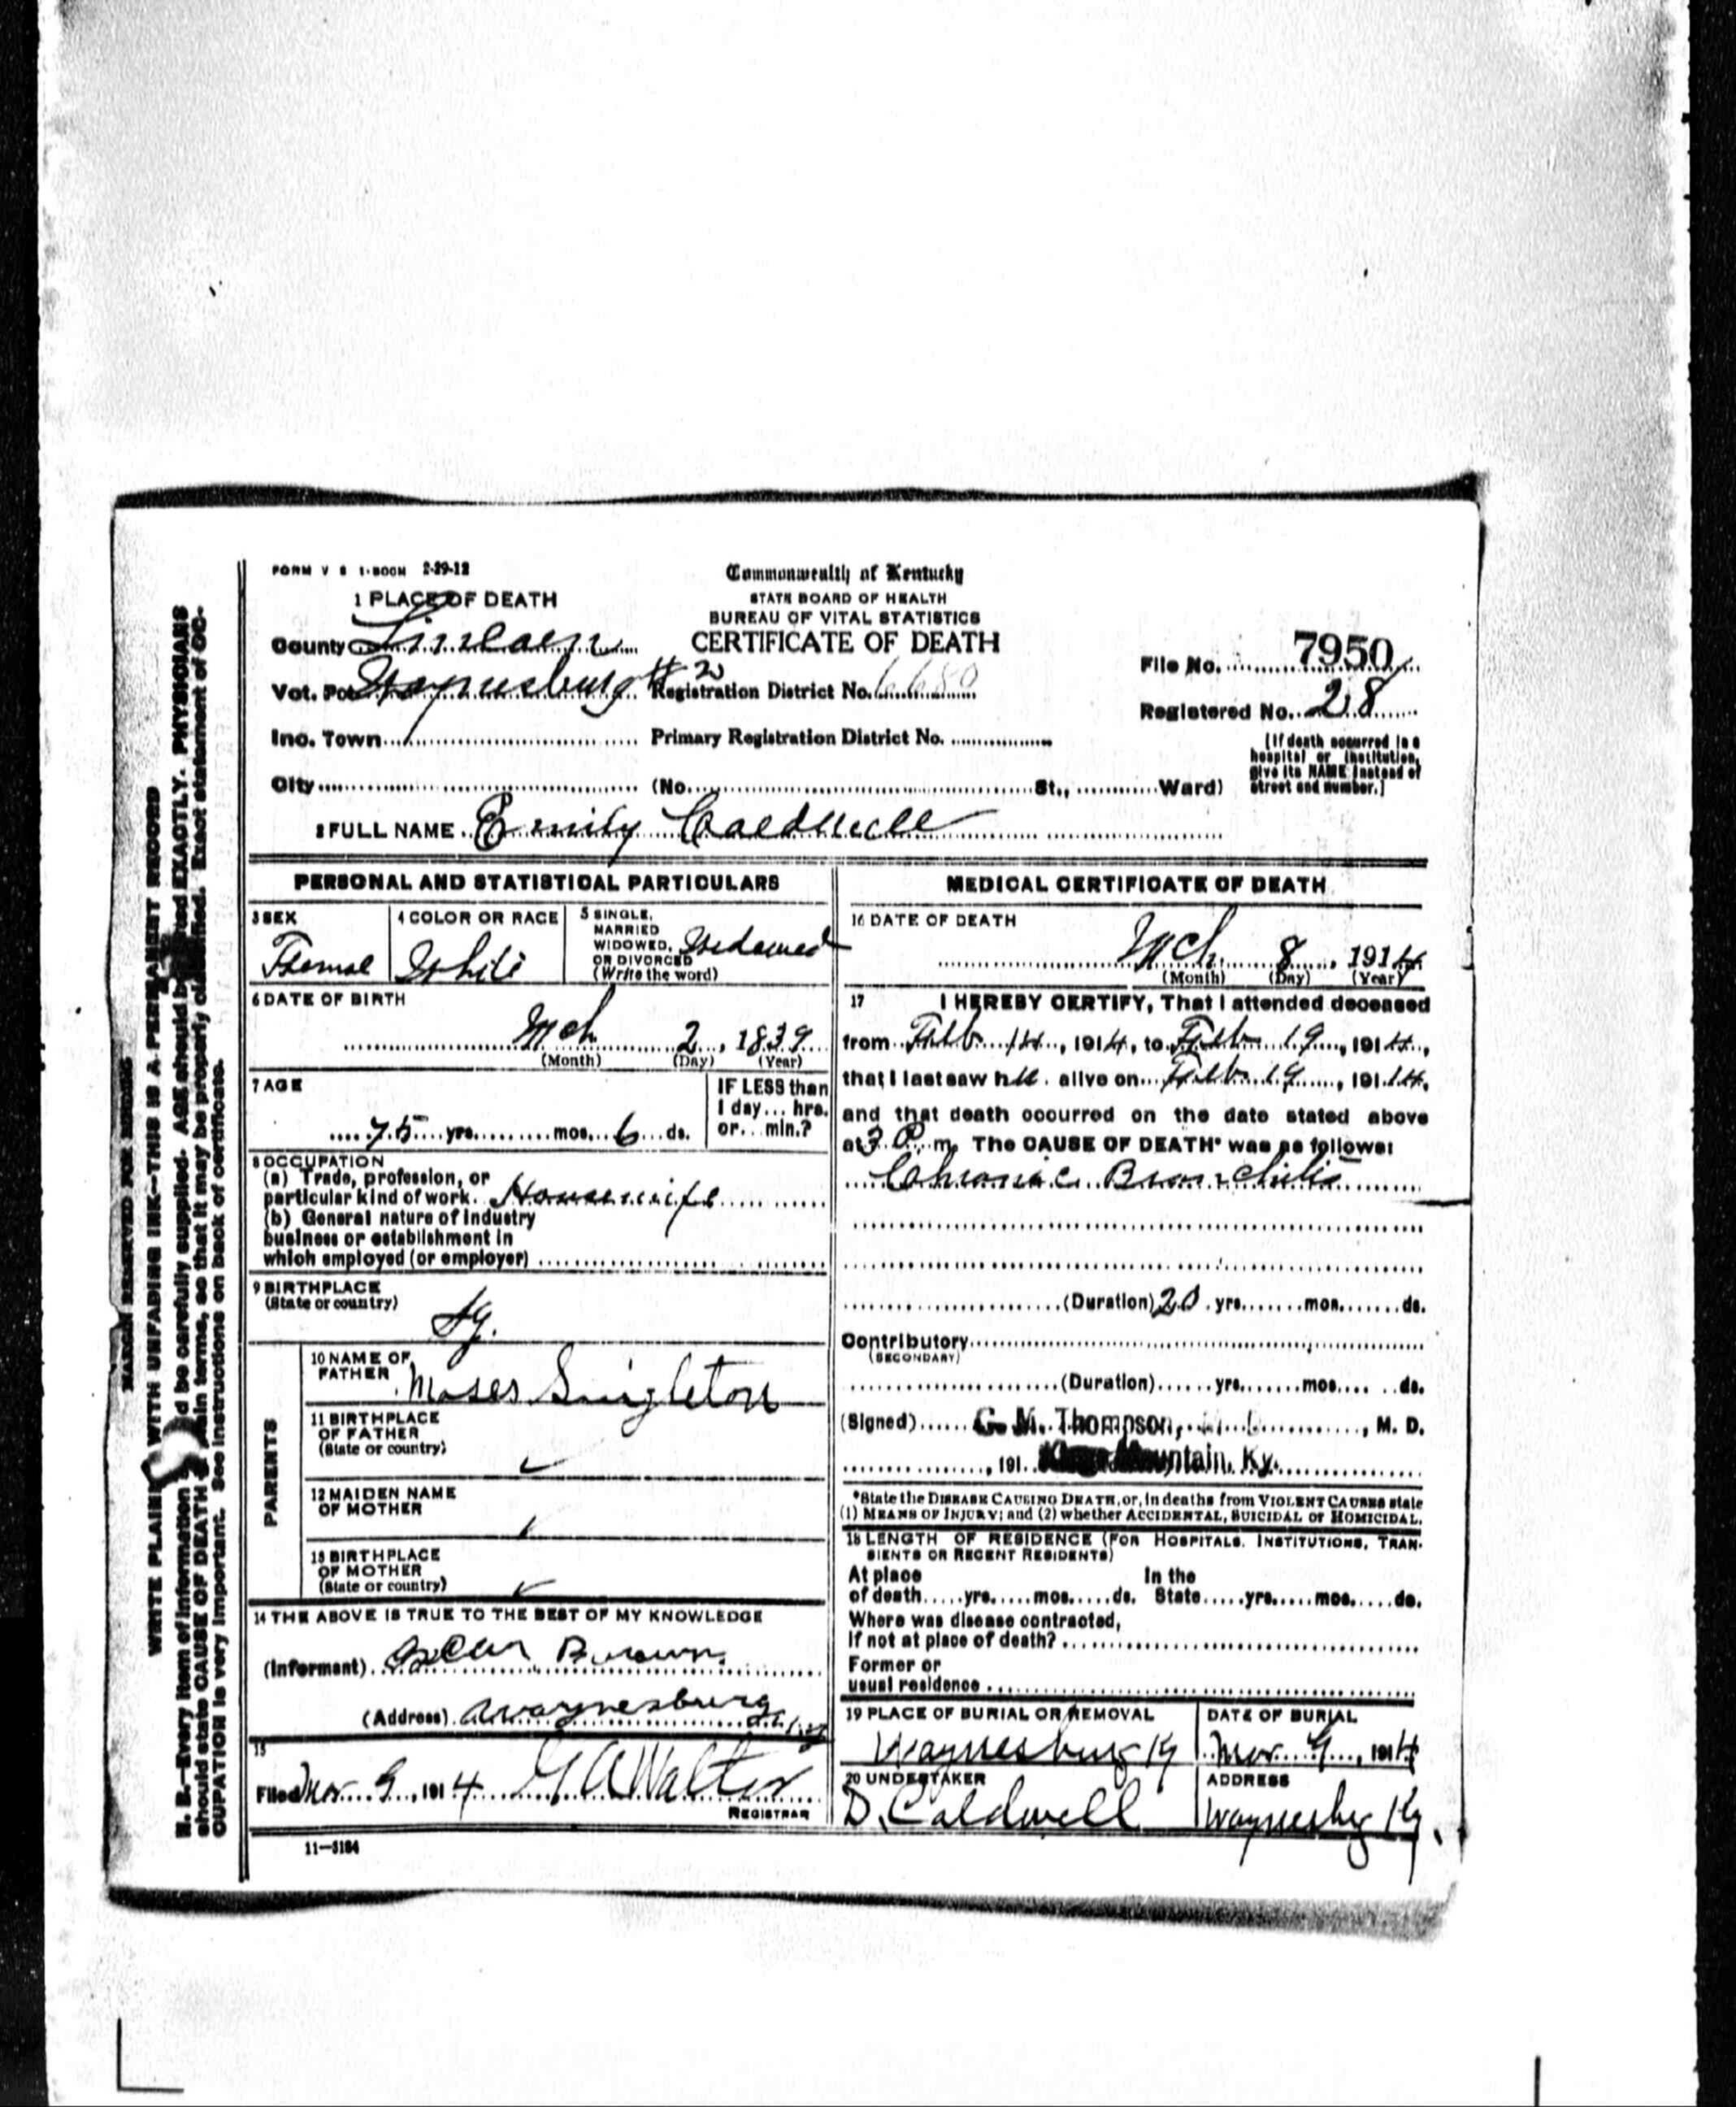 FORM V S 1-500M 2-29-12
Commonwealth of Kentucky
STATE BOARD OF HEALTH
BUREAU OF VITAL STATISTICS
CERTIFICATE OF DEATH
1 PLACE OF DEATH
County Lincoln
Vot. Pct Waynesburg #2 Registration District No. 6680
Inc. Town Primary Registration District No.
City (No. St., Ward)
File No. 7950
Registered No. 28
(If death occurred in a
hospital or institution,
give its NAME instead of
street and number.)
2 FULL NAME Emily Caldwell
PERSONAL AND STATISTICAL PARTICULARS
3 SEX
Femal
4 COLOR OR RACE
White
5 SINGLE,
MARRIED
WIDOWED, Widowed
OR DIVORCED
(Write the word)
6 DATE OF BIRTH
Mch 2, 1839
(Month) (Day) (Year)
7 AGE
75 yrs. mos. 6 ds.
IF LESS than
1 day... hrs.
or... min.?
8 OCCUPATION
(a) Trade, profession, or
particular kind of work. Housewife
(b) General nature of industry
business or establishment in
which employed (or employer)
9 BIRTHPLACE
(State or country)
Ky.
PARENTS
10 NAME OF
FATHER Moses Singleton
11 BIRTHPLACE
OF FATHER
(State or country)
12 MAIDEN NAME
OF MOTHER
13 BIRTHPLACE
OF MOTHER
(State or country)
14 THE ABOVE IS TRUE TO THE BEST OF MY KNOWLEDGE
(Informant) Oscar Brown
(Address) Waynesburg
15
Filed Mar. 9, 1914 G A Walter
REGISTRAR
11—5184
MEDICAL CERTIFICATE OF DEATH
16 DATE OF DEATH
Mch 8, 1914
(Month) (Day) (Year)
17 I HEREBY CERTIFY, That I attended deceased
from Feb 14, 1914, to Feb 19, 1914,
that I last saw her alive on Feb 19, 1914,
and that death occurred on the date stated above
at 3 P. m. The CAUSE OF DEATH* was as follows:
Chronic Bronchitis
(Duration) 20 yrs. mos. ds.
Contributory
(SECONDARY)
(Duration) yrs. mos. ds.
(Signed) G. M. Thompson, M. D.
, 191 Kings Mountain, Ky.
*State the DISEASE CAUSING DEATH, or, in deaths from VIOLENT CAUSES state
(1) MEANS OF INJURY; and (2) whether ACCIDENTAL, SUICIDAL or HOMICIDAL.
18 LENGTH OF RESIDENCE (FOR HOSPITALS, INSTITUTIONS, TRAN-
SIENTS OR RECENT RESIDENTS)
At place In the
of death yrs. mos. ds. State yrs. mos. ds.
Where was disease contracted,
If not at place of death?
Former or
usual residence
19 PLACE OF BURIAL OR REMOVAL
Waynesburg Ky
DATE OF BURIAL
Mar. 9, 1914
20 UNDERTAKER
D. Caldwell
ADDRESS
Waynesbg Ky.
MARGIN RESERVED FOR BINDING
WRITE PLAINLY WITH UNFADING INK—THIS IS A PERMANENT RECORD
N. B.—Every item of information d be carefully supplied. AGE should b EXACTLY. PHYSICIANS
should state CAUSE OF DEATH in terms, so that it may be properly classified. Exact statement of OC-
CUPATION is very important. See instructions on back of certificate.